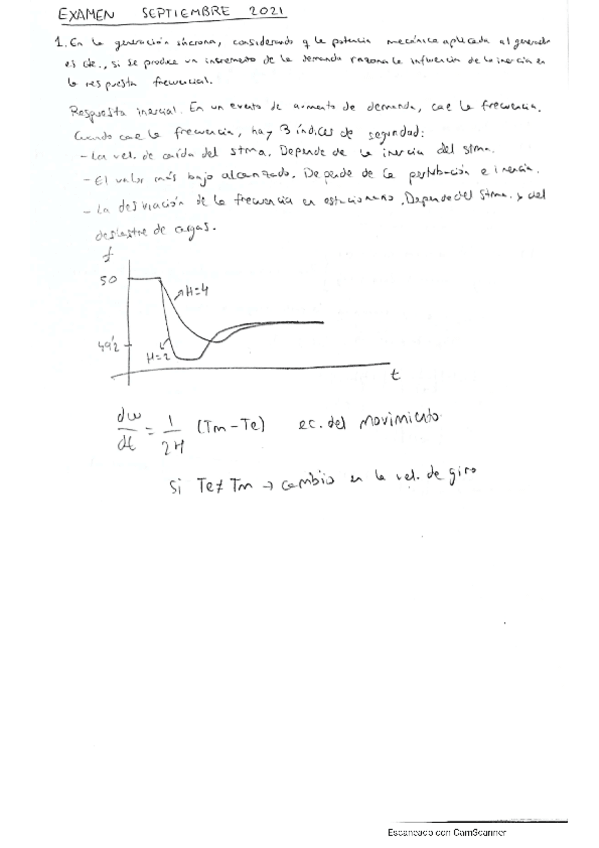 EXAMEN SEPTIEMBRE 2021
1. En la generación síncrona, considerando q la potencia mecánica aplicada al generador
es cte., si se produce un incremento de la demanda razona la influencia de la inercia en
la respuesta frecuencial.
Respuesta inercial. En un evento de aumento de demanda, cae la frecuencia.
Cuando cae la frecuencia, hay 3 índices de seguridad:
- La vel. de caída del stma. Depende de la inercia del stma.
- El valor más bajo alcanzado. Depende de la perturbación e inercia.
- La desviación de la frecuencia en estacionario. Depende del stma. y del
deslastre de cargas.
f
50
H=4
49'2
H=2
t
dw/dt = 1/2H (Tm - Te) ec. del movimiento
Si Te≠Tm → cambio en la vel. de giro
Escaneado con CamScanner